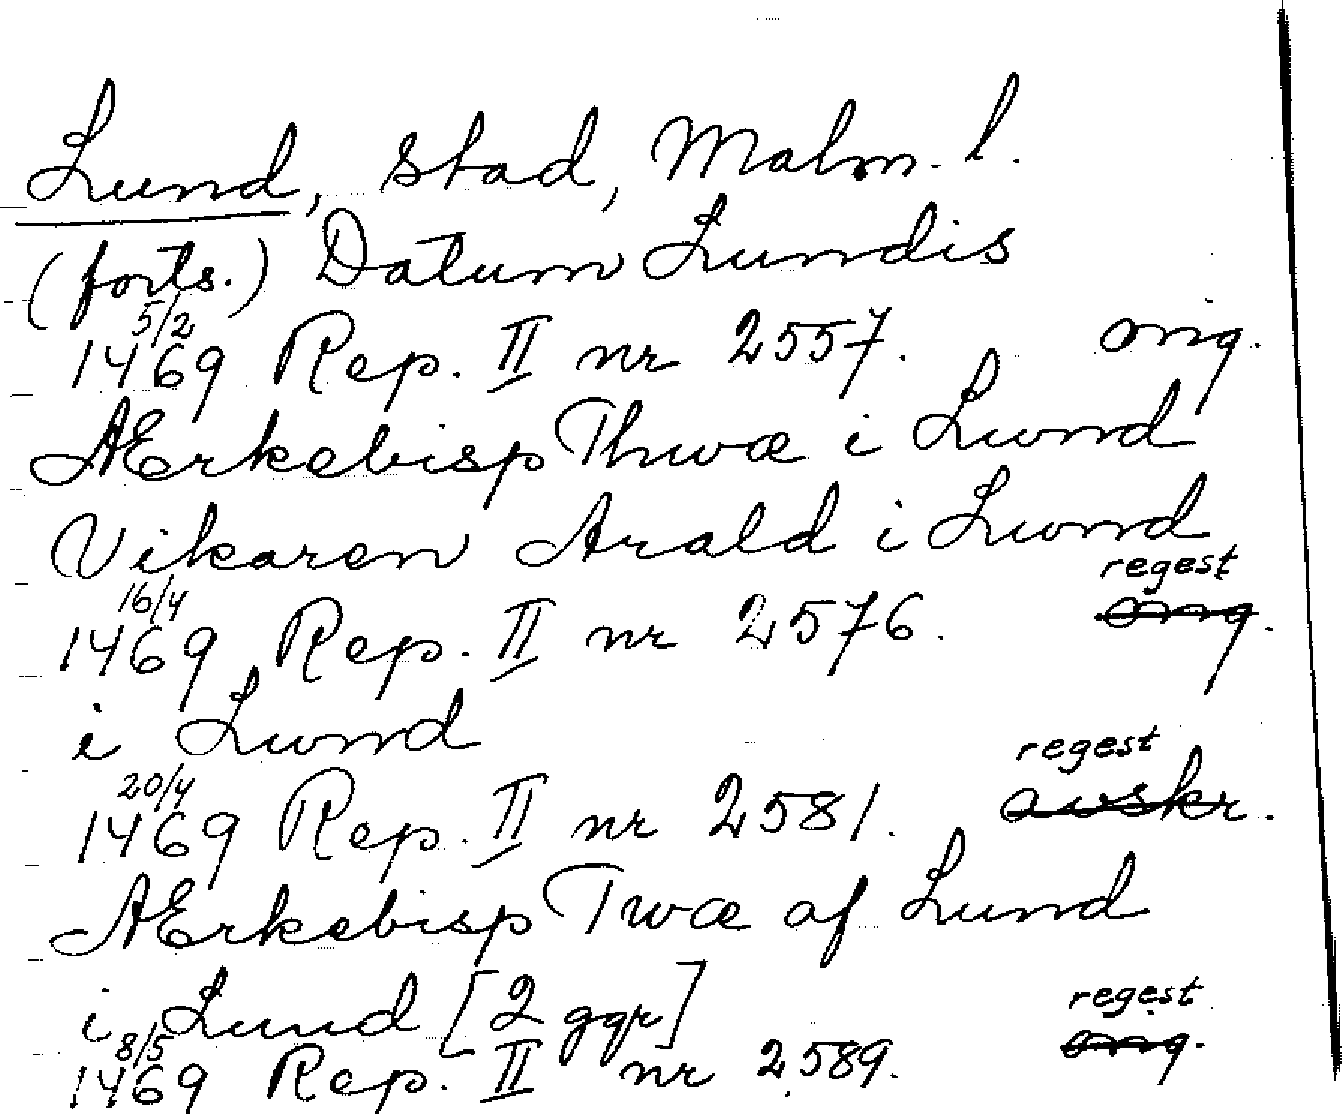 Lund, stad, Malm. l.
(forts.) Datum Lundis
5/2
1469 Rep. II nr 2557. orig.
AErkebisp Thwæ i Lwnd
Vikaren Arald i Lwnd
16/4 regest
1469 Rep. II nr 2576. orig.
i Lwnd
20/4 regest
1469 Rep. II nr 2581. avskr.
AErkebisp Twæ af Lund
i Lund [2 ggr]
8/5 regest
1469 Rep. II nr 2589. orig.